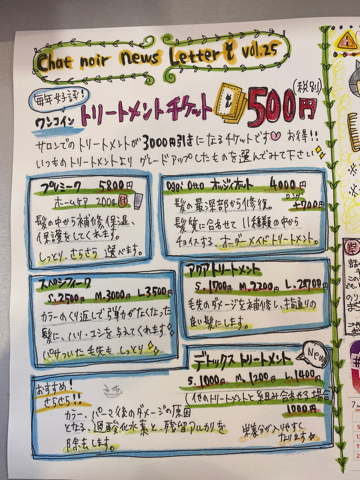 Chat noir news Letter vol.25
毎年好評!
ワンコイン トリートメントチケット 500円 (税別)
サロンでのトリートメントが3000円引きになるチケットです♡ お得!!
いつものトリートメントより グレードアップしたものを選んでみて下さい
プレミーク 5800円
ホームケア 2000円
髪の中から補修、保湿、
保護をしてくれます。
しっとり、さらさら 選べます。
Oggi Otto 4000円
ロング +700円
髪の最深部から修復。
髪質に合わせて 11種類の中から
チョイスする、オーダーメイドトリートメント。
S.2500円 M.3000円 L.3500円
カラーのくり返しで弾力がなくなった
髪に、ハリ・コシを与えてくれます
パサついた毛先も しっとり
アクアトリートメント
S.1700円 M.2200円 L.2700円
毛先のダメージを補修し、指通りの
良い髪にします。
New
デトックストリートメント
S.1000円 M.1200円 L.1400円
(他のトリートメントと組み合わせる場合
1000円
おすすめ!
さらさら!!
カラー、パーマ後のダメージの原因
となる、過酸化水素と、残留アルカリを
除去します。
栄養分が入りやすく
なります